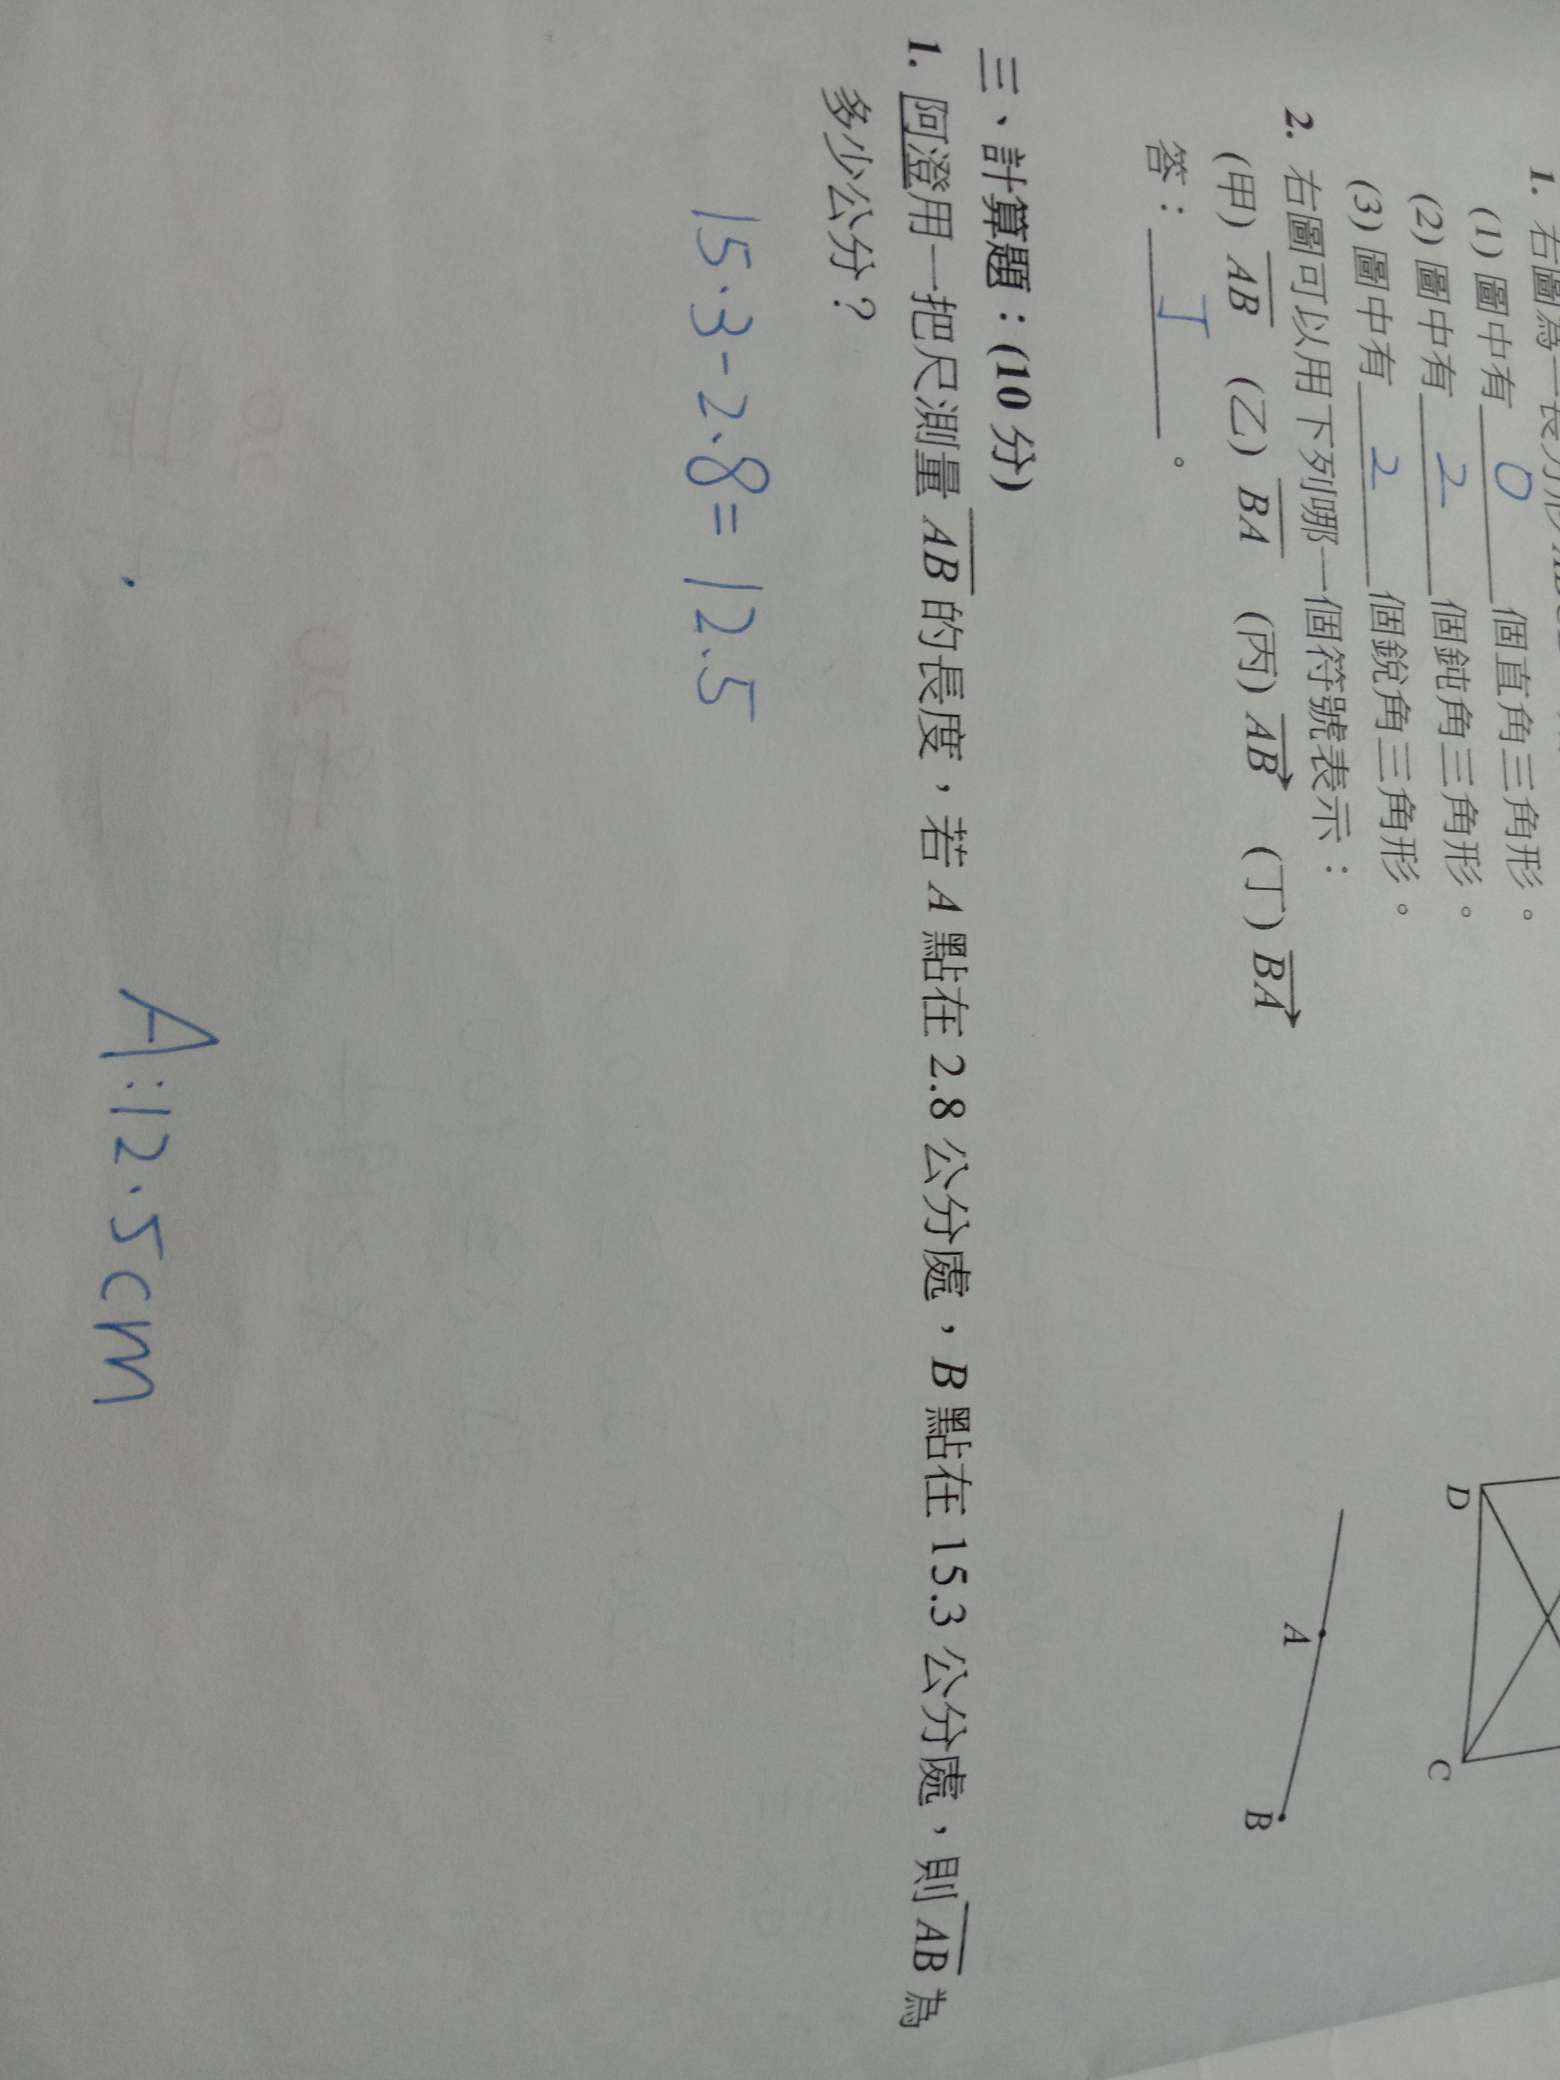 1. 右圖為一長方形
(1) 圖中有 0 個直角三角形。
(2) 圖中有 2 個鈍角三角形。
(3) 圖中有 2 個銳角三角形。
D
C
2. 右圖可以用下列哪一個符號表示：
(甲) AB (乙) BA (丙) AB (丁) BA
答： 丁 。
A
B
三、計算題：(10 分)
1. 阿澄用一把尺測量 AB 的長度，若 A 點在 2.8 公分處，B 點在 15.3 公分處，則 AB 為
多少公分？
15.3-2.8=12.5
A:12.5cm